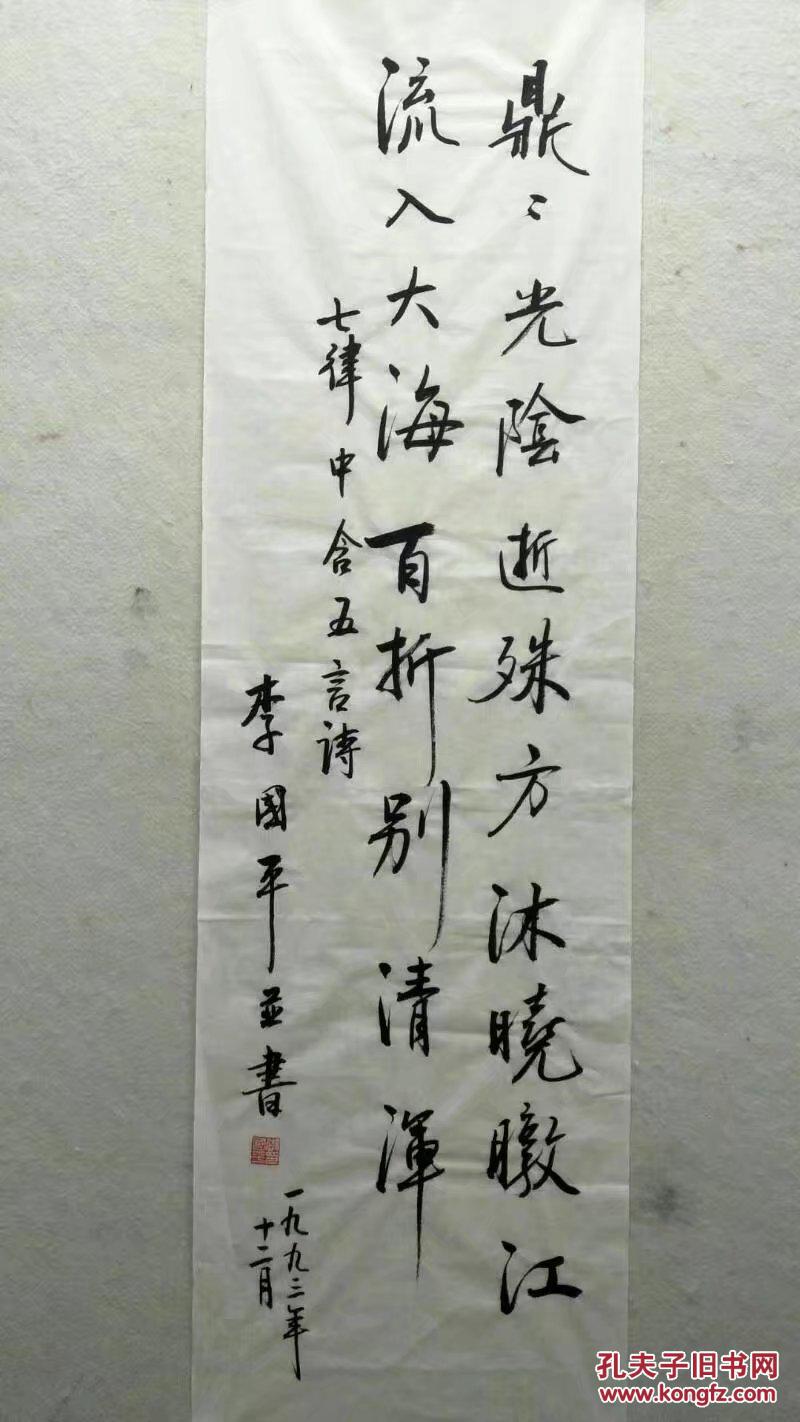 鼎〻光陰逝殊方沐曉暾江
流入大海百折別清渾
七律中含五言詩
李國平並書
一九九三年
十二月
孔夫子旧书网
www.kongfz.com